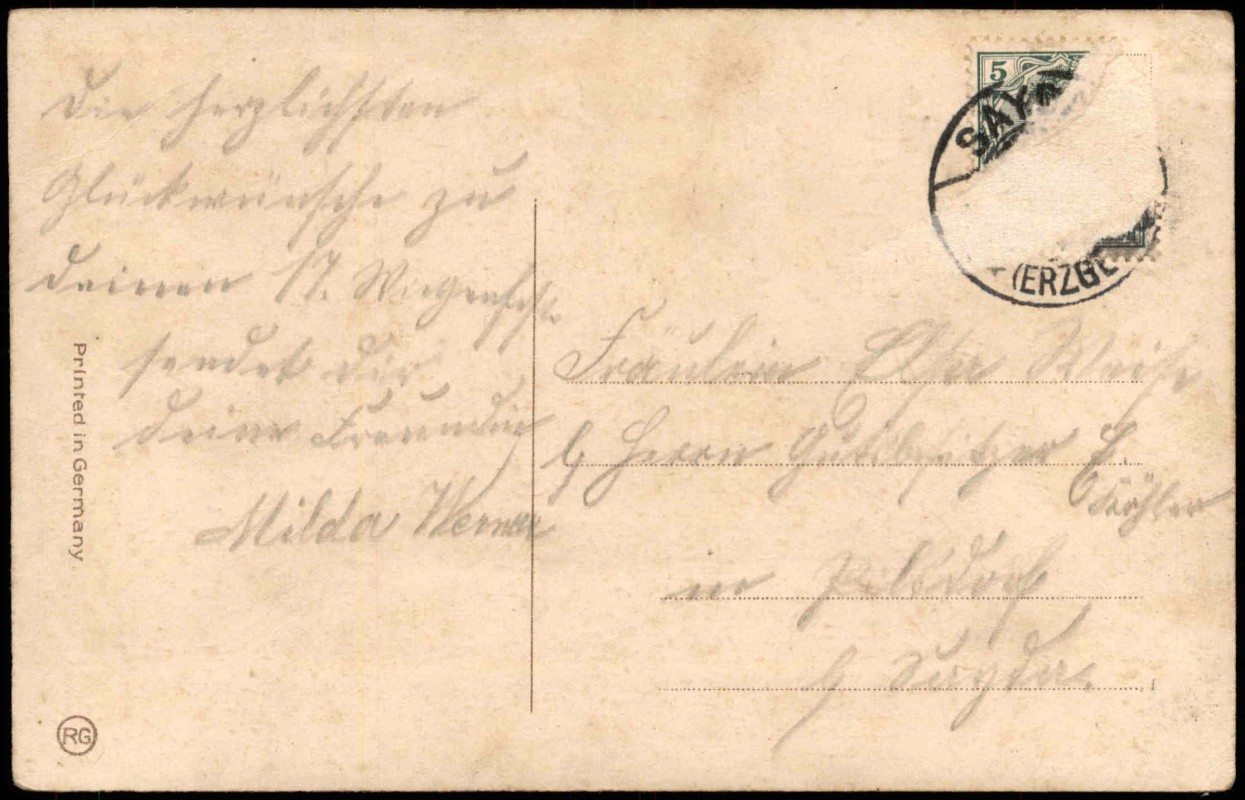 Die herzlichsten
Glückwünsche zu
deinen 17. Wiegenfeste
sendet dir
deine Freundin
Milda Werner
Printed in Germany
RG
5
SAY
(ERZGE
Fräulein Elsa Weise
b. Herrn Gutsbesitzer E.
Köhler
in
b. Sayda.